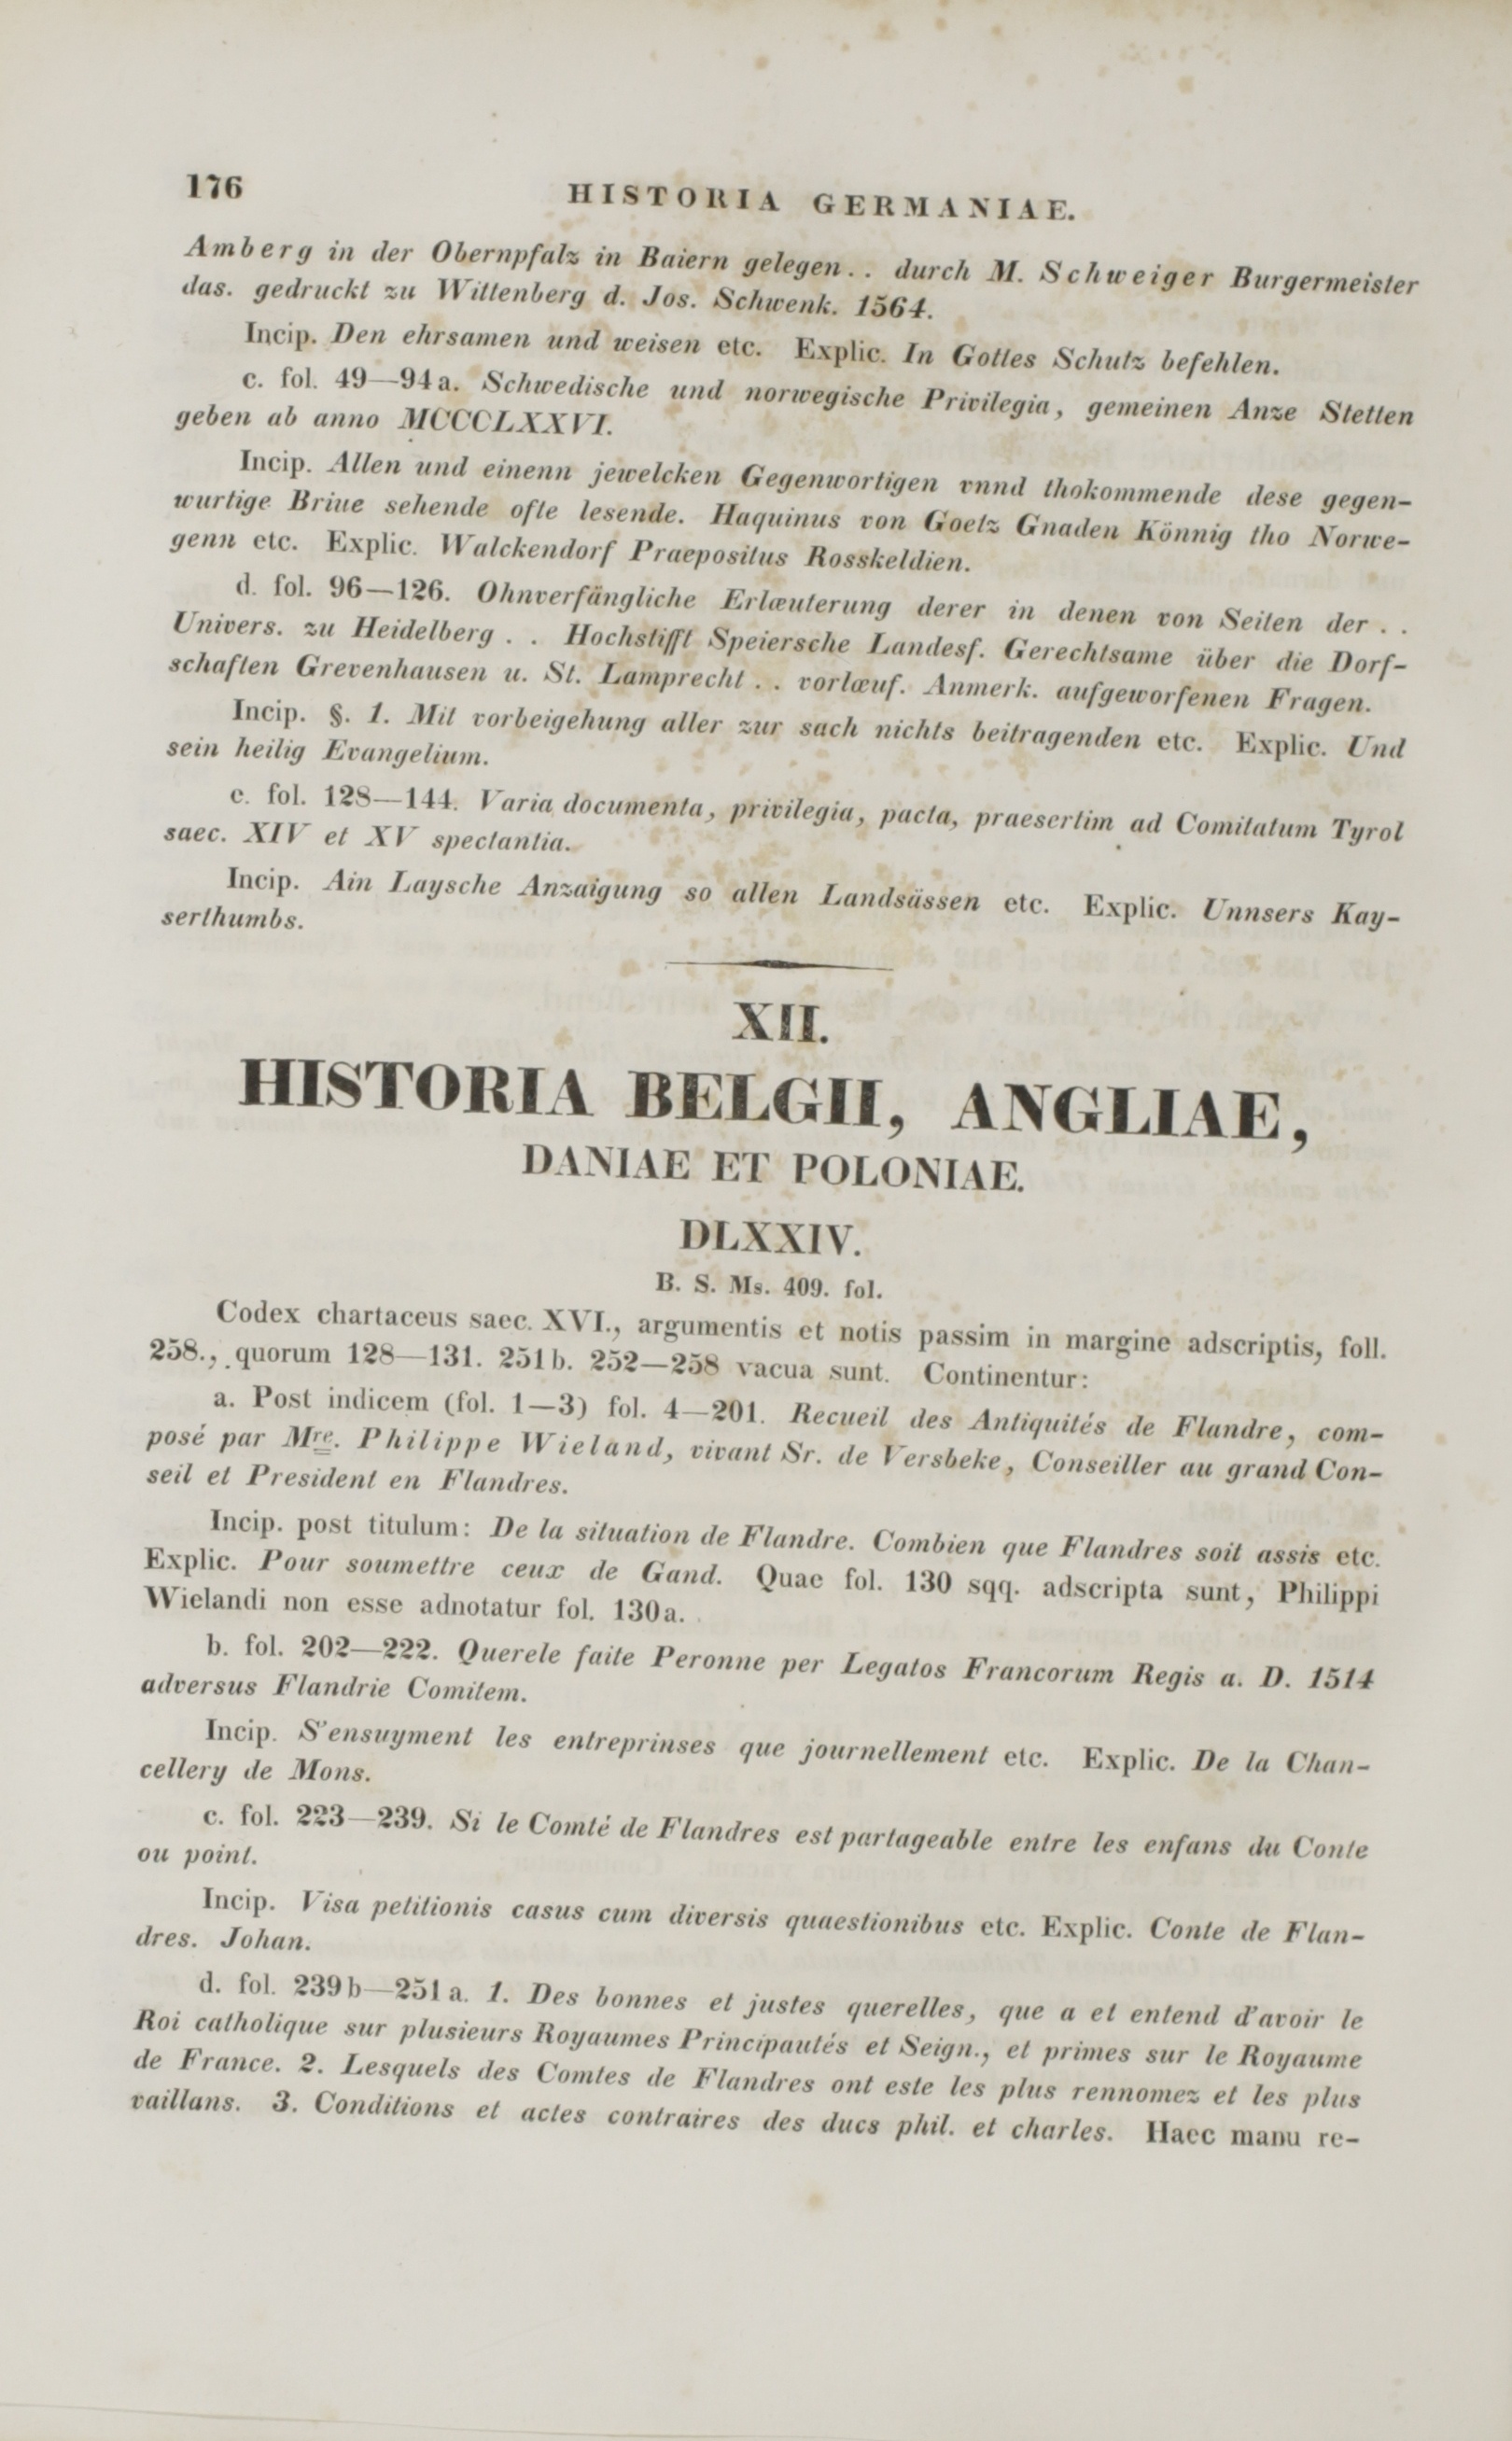 176 HISTORIA GERMANIAE.
Amberg in der Obernpfalz in Baiern gelegen . . durch M. Schweiger Burgermeister
das. gedruckt zu Wittenberg d. Jos. Schwenk. 1564.
Incip. Den ehrsamen und weisen etc. Explic. In Gottes Schutz befehlen.
c. fol. 49—94a. Schwedische und norwegische Privilegia, gemeinen Anze Stetten
geben ab anno MCCCLXXVI.
Incip. Allen und einenn jewelcken Gegenwortigen vnnd thokommende dese gegen-
wurtige Briue sehende ofte lesende. Haquinus von Goetz Gnaden Könnig tho Norwe-
genn etc. Explic. Walckendorf Praepositus Rosskeldien.
d. fol. 96—126. Ohnverfängliche Erlæuterung derer in denen von Seiten der . .
Univers. zu Heidelberg . . Hochstifft Speiersche Landesf. Gerechtsame über die Dorf-
schaften Grevenhausen u. St. Lamprecht . . vorlæuf. Anmerk. aufgeworfenen Fragen.
Incip. §. 1. Mit vorbeigehung aller zur sach nichts beitragenden etc. Explic. Und
sein heilig Evangelium.
e. fol. 128—144. Varia documenta, privilegia, pacta, praesertim ad Comitatum Tyrol
saec. XIV et XV spectantia.
Incip. Ain Laysche Anzaigung so allen Landsässen etc. Explic. Unnsers Kay-
serthumbs.
XII.
HISTORIA BELGII, ANGLIAE,
DANIAE ET POLONIAE.
DLXXIV.
B. S. Ms. 409. fol.
Codex chartaceus saec. XVI., argumentis et notis passim in margine adscriptis, foll.
258., quorum 128—131. 251b. 252—258 vacua sunt. Continentur:
a. Post indicem (fol. 1—3) fol. 4—201. Recueil des Antiquités de Flandre, com-
posé par Mre. Philippe Wieland, vivant Sr. de Versbeke, Conseiller au grand Con-
seil et President en Flandres.
Incip. post titulum: De la situation de Flandre. Combien que Flandres soit assis etc.
Explic. Pour soumettre ceux de Gand. Quae fol. 130 sqq. adscripta sunt, Philippi
Wielandi non esse adnotatur fol. 130a.
b. fol. 202—222. Querele faite Peronne per Legatos Francorum Regis a. D. 1514
adversus Flandrie Comitem.
Incip. S'ensuyment les entreprinses que journellement etc. Explic. De la Chan-
cellery de Mons.
c. fol. 223—239. Si le Comté de Flandres est partageable entre les enfans du Conte
ou point.
Incip. Visa petitionis casus cum diversis quaestionibus etc. Explic. Conte de Flan-
dres. Johan.
d. fol. 239b—251a. 1. Des bonnes et justes querelles, que a et entend d'avoir le
Roi catholique sur plusieurs Royaumes Principautés et Seign., et primes sur le Royaume
de France. 2. Lesquels des Comtes de Flandres ont este les plus rennomez et les plus
vaillans. 3. Conditions et actes contraires des ducs phil. et charles. Haec manu re-